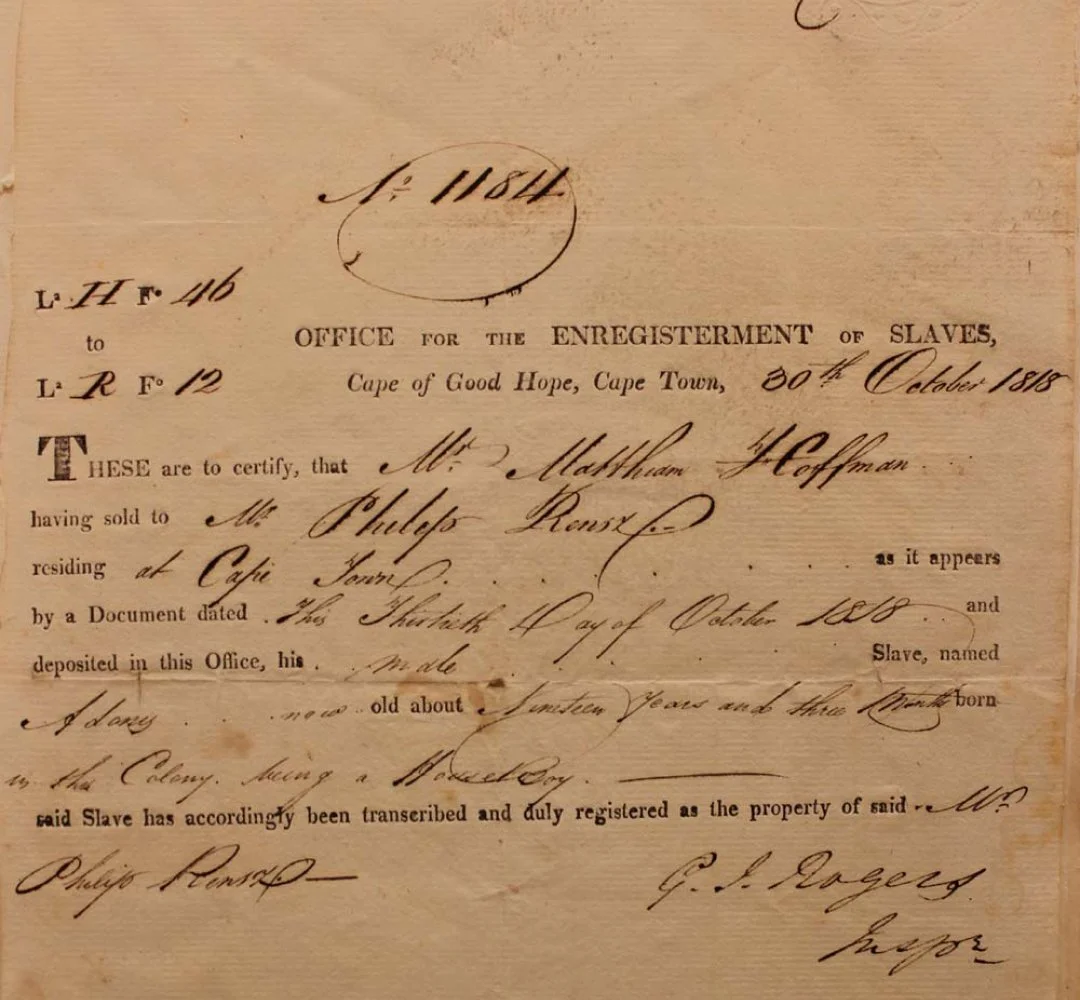 No. 1184
La. H Fo. 46
to
La. R Fo. 12
OFFICE FOR THE ENREGISTERMENT OF SLAVES,
Cape of Good Hope, Cape Town, 30th October 1818
THESE are to certify, that Mr. Matthiam Hoffman
having sold to Mr. Philip Rensz
residing at Cape Town as it appears
by a Document dated This Thirtieth Day of October 1818 and
deposited in this Office, his male Slave, named
Adonis now old about Nineteen Years and three Months born
in this Colony. being a House Boy.
said Slave has accordingly been transcribed and duly registered as the property of said Mr.
Philip Rensz
G. J. Rogers
Inspr.